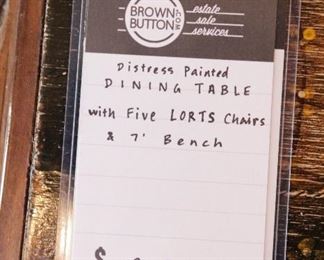 BROWN
BUTTON
.COM
estate
sale
services
Distress Painted
DINING TABLE
with Five LORTS Chairs
& 7' Bench
$